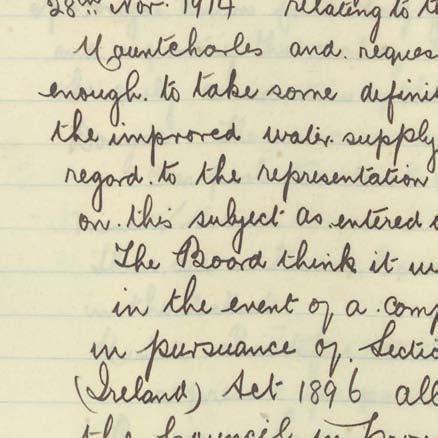 28th Nov. 1914 relating to t
Mountcharles and reques
enough. to take some definit
the improved water supply
regard. to the representation
on. this subject as entered
The Board think it
in the event of a comp
in pursuance of. Sectio
(Ireland) Act 1896 all
the Council in